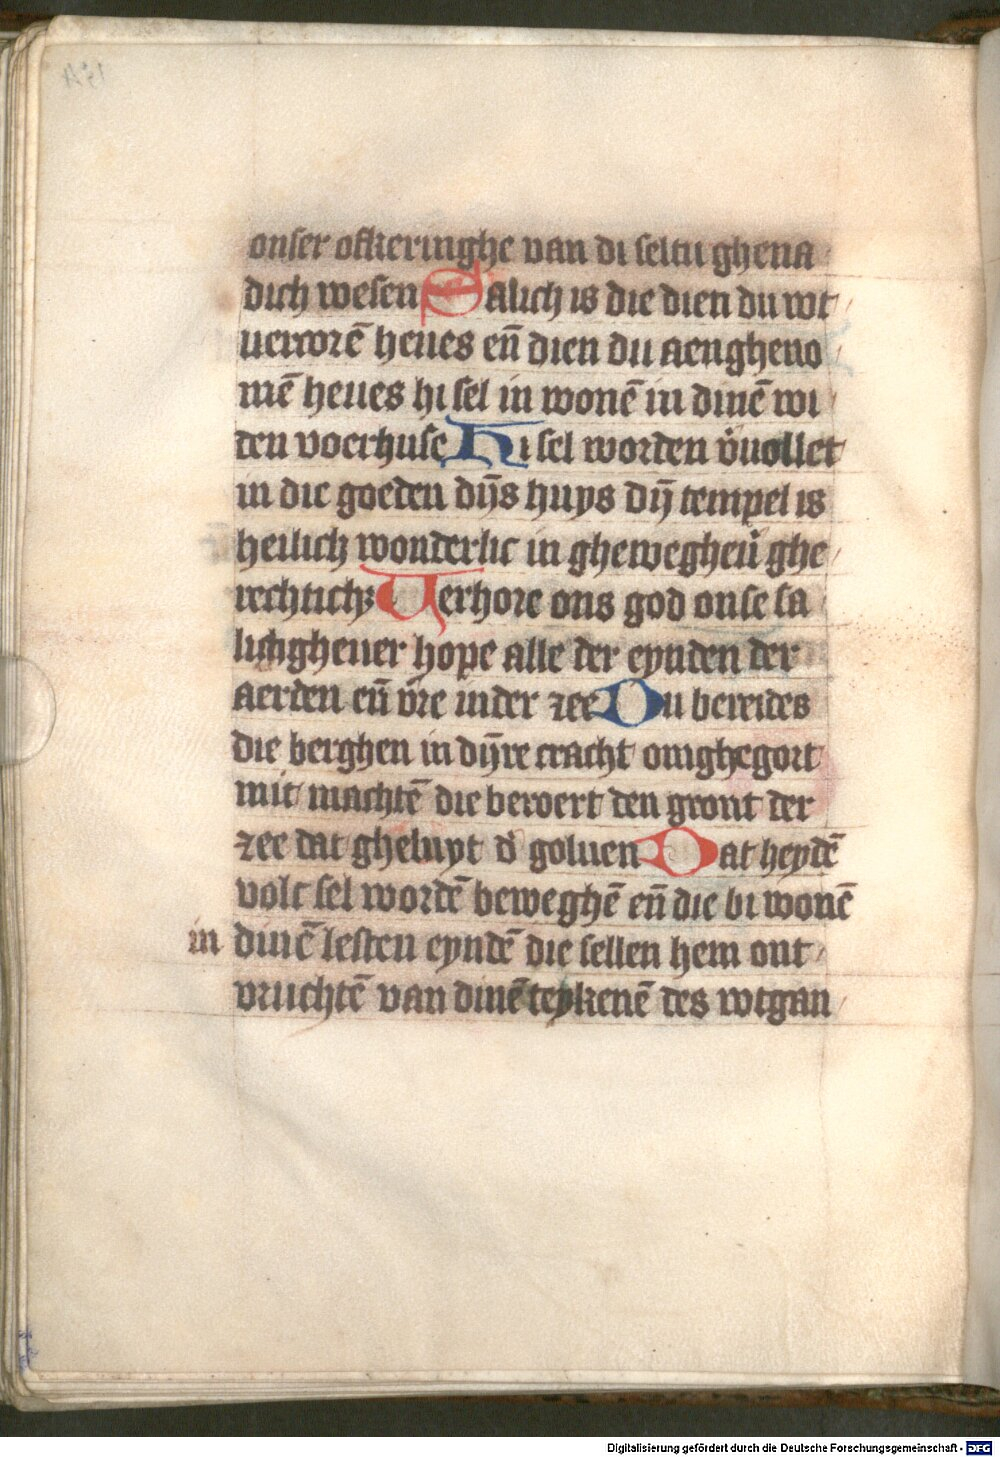 onser ofkeringhe van di seltu ghena
dich wesen Salich is die dien du wt
uercorē heues eñ dien du aengheno
mē heues hi sel in wonē in dinē wi
den voerhuse Hi sel worden v̓uollet
in die goeden dijs huys dij tempel is
heilich wonderlic in ghewegheu̓ ghe
rechtich Uerhore ons god onse sa
lichgheuer hope alle der eynden der
aerden eñ v̓re inder zee Du bereides
die berghen in dijre cracht omghegort
mit machtē die beroert den gront der
zee dat gheluyt d̓ goluen Dat heydē
volc sel wordē beweghē eñ die bi wonē
in dinē lesten eyndē die sellen hem ont
vruchtē van dinē teykenē des wtgan
Digitalisierung gefördert durch die Deutsche Forschungsgemeinschaft - DFG